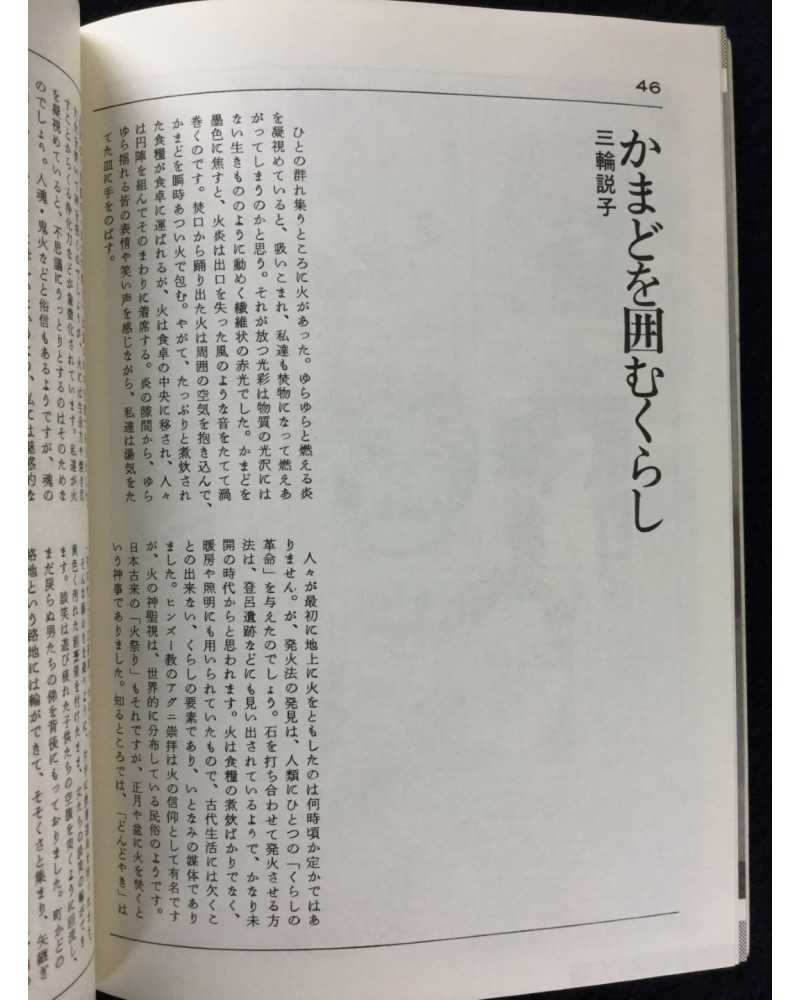 46
かまどを囲むくらし
三輪説子
ひとの群れ集うところに火があった。ゆらゆらと燃える炎
を凝視めていると、吸いこまれ、私達も焚物になって燃えあ
がってしまうのかと思う。それが放つ光彩は物質の光沢には
ない生きもののように動めく繊維状の赤光でした。かまどを
墨色に焦すと、火炎は出口を失った風のような音をたてて渦
巻くのです。焚口から踊り出た火は周囲の空気を抱き込んで、
かまどを瞬時あつい火で包む。やがて、たっぷりと煮炊され
た食糧が食卓に運ばれるが、火は食卓の中央に移され、人々
は円陣を組んでそのまわりに着席する。炎の隙間から、ゆら
ゆら揺れる皆の表情や笑い声を感じながら、私達は湯気をた
てた皿に手をのばす。
人々が最初に地上に火をともしたのは何時頃か定かではあ
りません。が、発火法の発見は、人類にひとつの「くらしの
革命」を与えたのでしょう。石を打ち合わせて発火させる方
法は、登呂遺跡などにも見い出されているようで、かなり未
開の時代からと思われます。火は食糧の煮炊ばかりでなく、
暖房や照明にも用いられていたもので、古代生活には欠くこ
との出来ない、くらしの要素であり、いとなみの媒体であり
ました。ヒンズー教のアグニ崇拝は火の信仰として有名です
が、火の神聖視は、世界的に分布している民俗のようです。
日本古来の「火祭り」もそれですが、正月や盆に火を焚くと
いう神事でありました。知るところでは、「どんどやき」は
を凝視めていると、不思議にうっとりとするのはそのためな
のでしょう。人魂・鬼火などと俗信もあるようですが、魂の
ます。談笑は遊び疲れた子供たちの空腹を突くように回復し、
まだ戻らぬ男たちの俤を背後にもっておりました。町かどの
路地という路地には輪ができて、そそくさと集まり、矢継ぎ